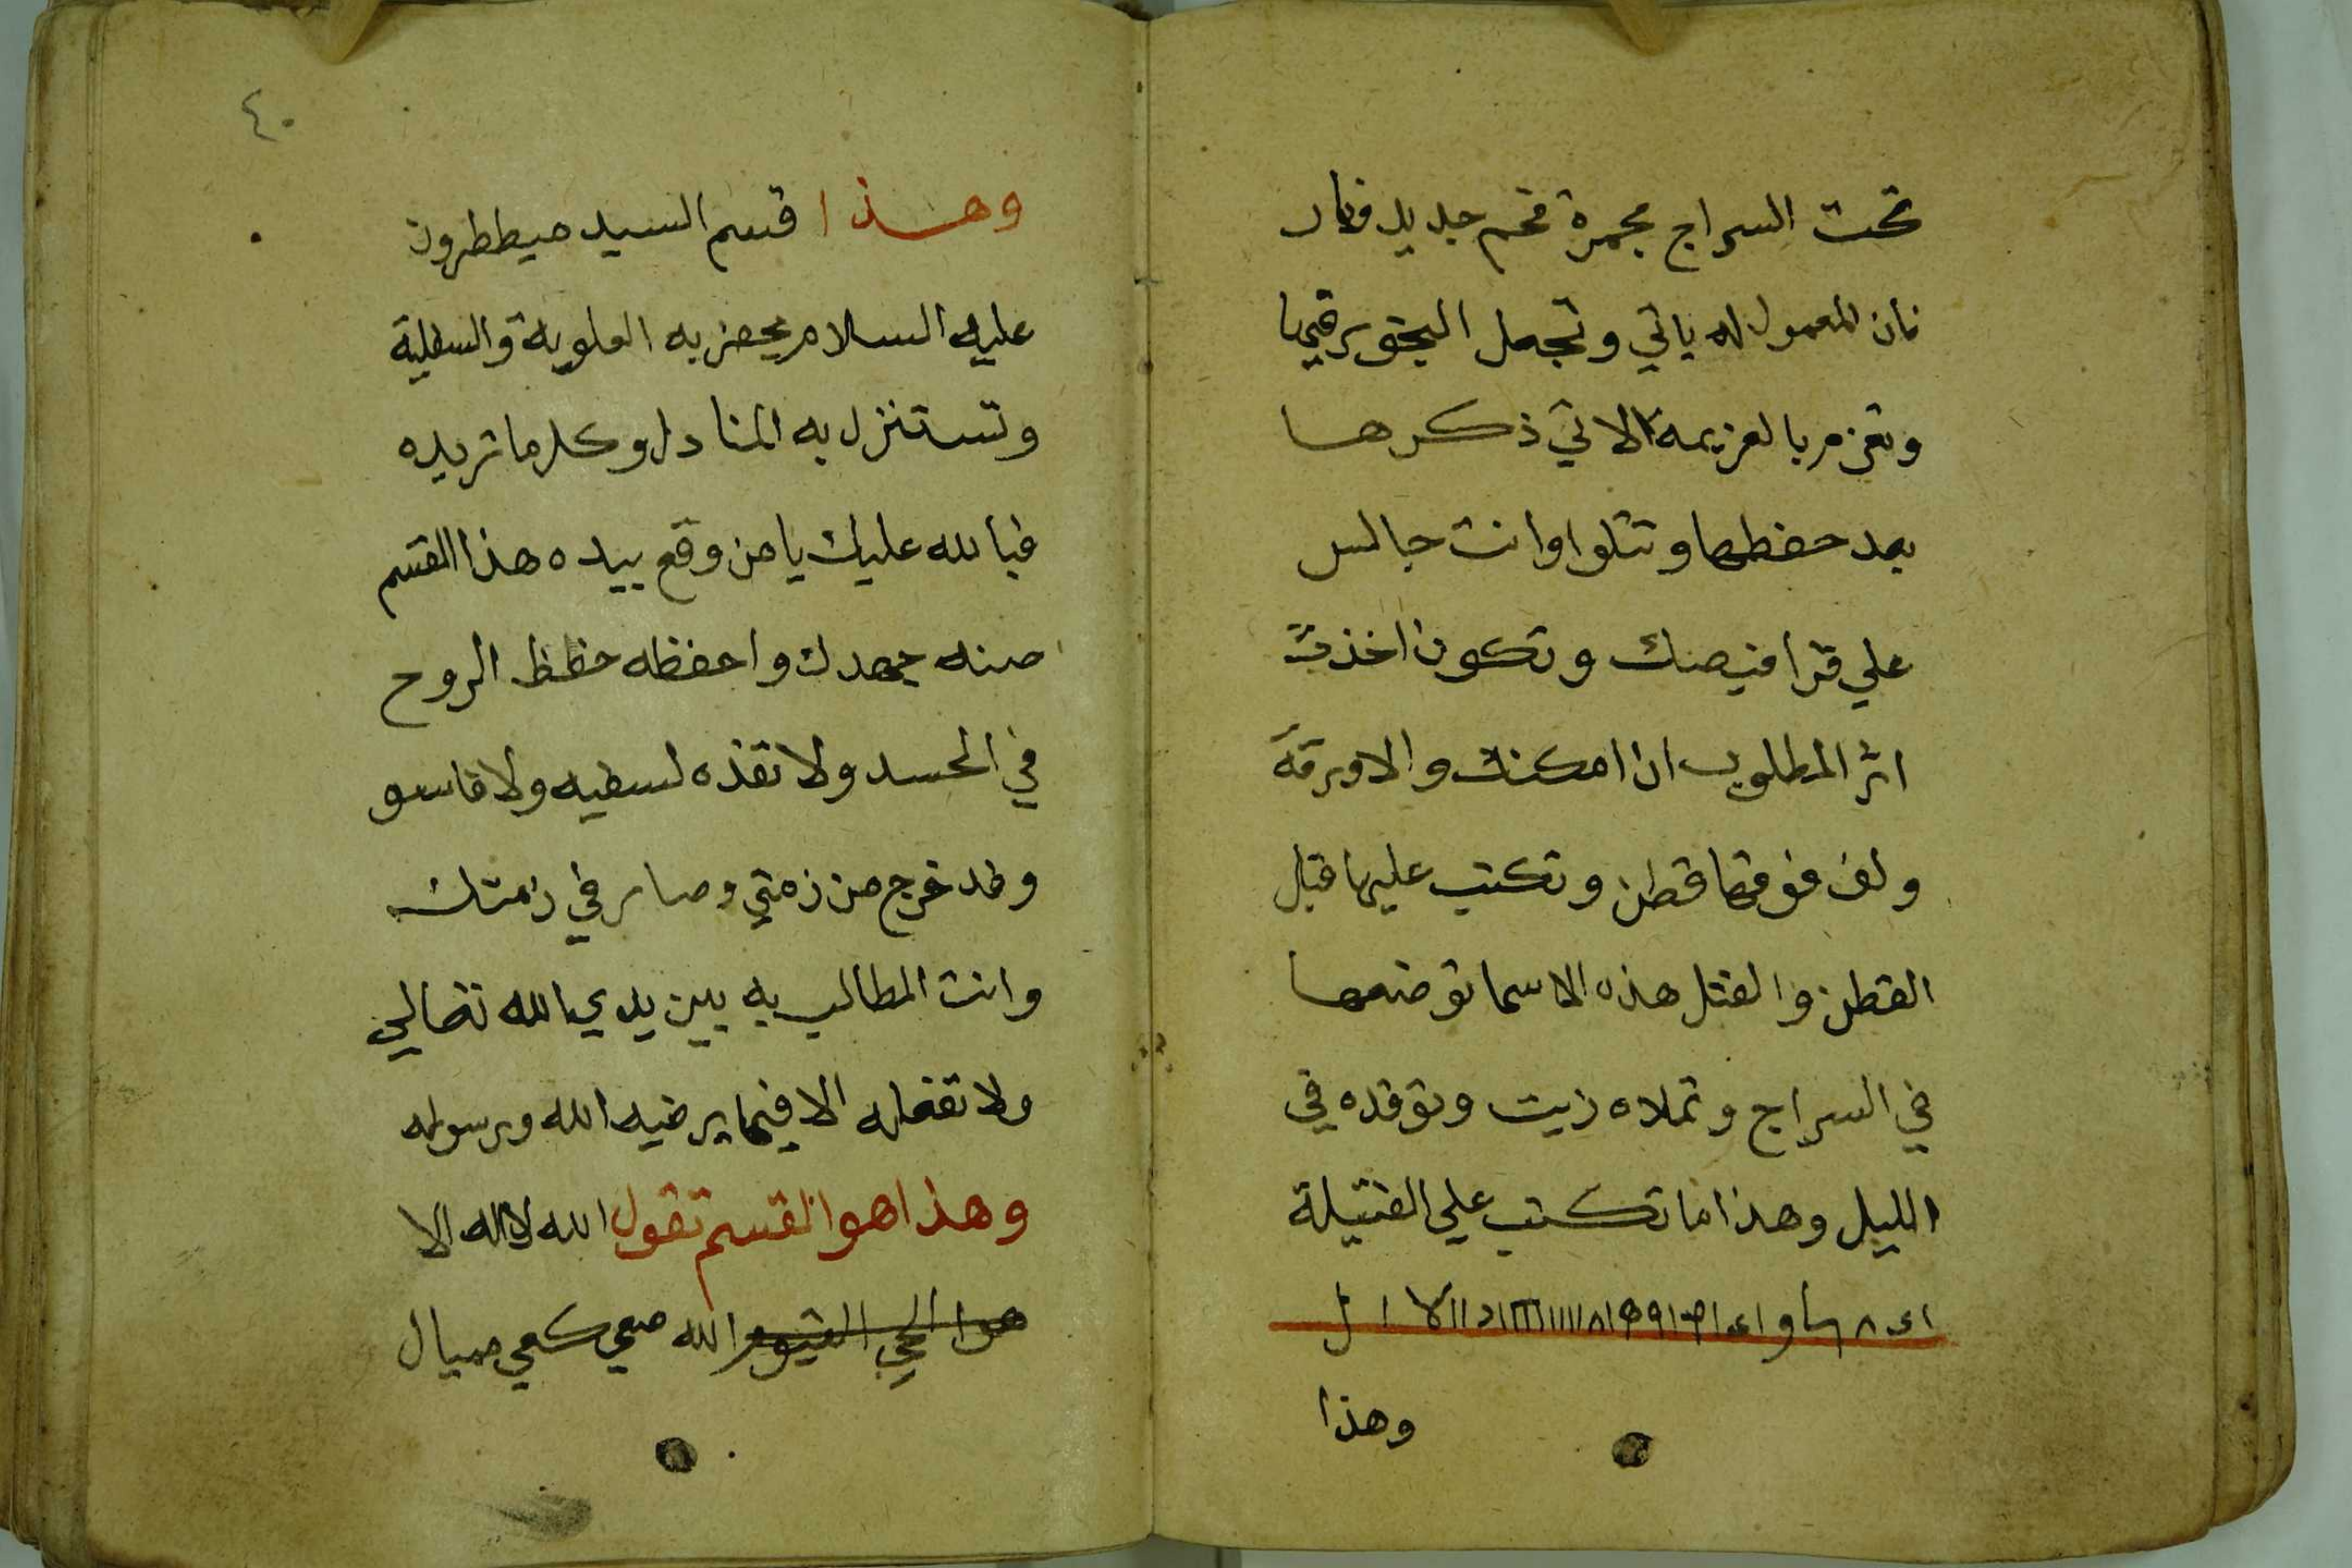 تحت السراج مجمرة فحم جديد ونار
فان المعمول له ياتي وتجعل البخور فيها
وتعزم بالعزيمة الاتي ذكرها
بعد حفظها وتتلوا وانت جالس
علي قرافيصك وتكون اخذت
اثر المطلوب ان امكنك والا ورقة
ولف فوقها قطن وتكتب عليها قبل
القطن والفتل هذه الاسما توضعها
في السراج وتملاه زيت وتوقده في
الليل وهذا ما تكتب علي الفتيلة
وهذا
٤٠
وهذا قسم السيد ميططرون
عليه السلام يحضر به العلوية والسفلية
وتستنزل به المنادل وكلما تريده
فبالله عليك يا من وقع بيده هذا القسم
صنه جهدك واحفظه حفظ الروح
في الجسد ولا تفذه لسفيه ولا فاسق
وقد خرج من زمتي وصار في زمتك
وانت المطالب به بين يدي الله تعالي
ولا تفعله الا فيما يرضيه الله ورسوله
وهذا هو القسم تقول الله لا اله الا
هو الحي القيوم الله صعي كعي مميال